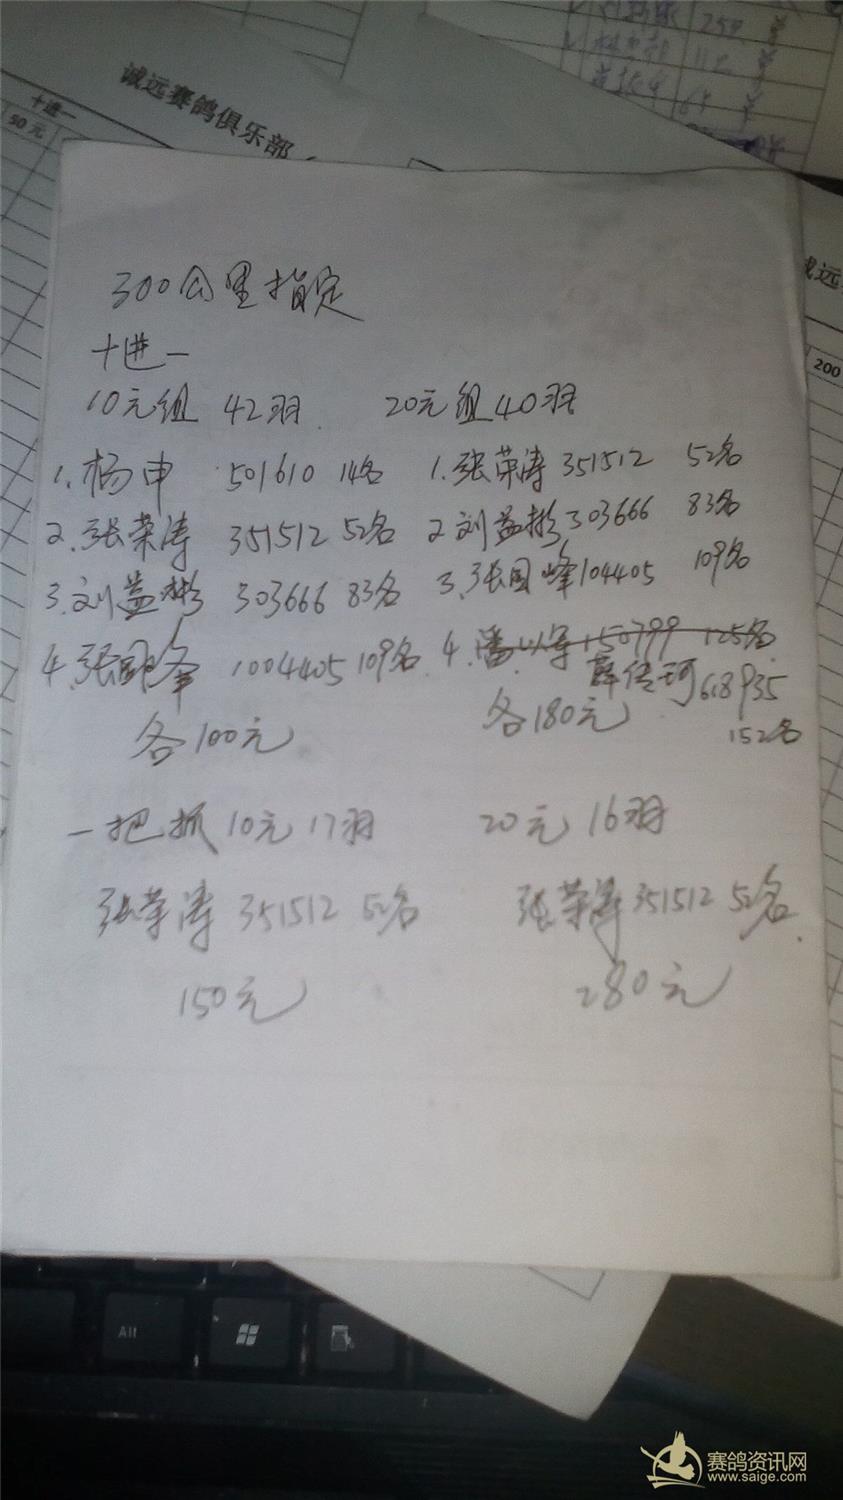 诚远赛鸽俱乐部
十进一
50元
200
300公里指定
十进一
10元组 42羽 20元组 40羽
1.杨申 501610 14名 1.张荣涛 351512 52名
2.张荣涛 351512 52名 2.刘益彬 303666 83名
3.刘益彬 303666 83名 3.张国峰 104405 109名
4.张国峰 1004405 109名 4.潘以军 150799 125名
薛传珂 618935
152名
各100元 各180元
一把抓 10元 17羽 20元 16羽
张荣涛 351512 52名 张荣涛 351512 52名
150元 280元
Alt
赛鸽资讯网
www.saige.com